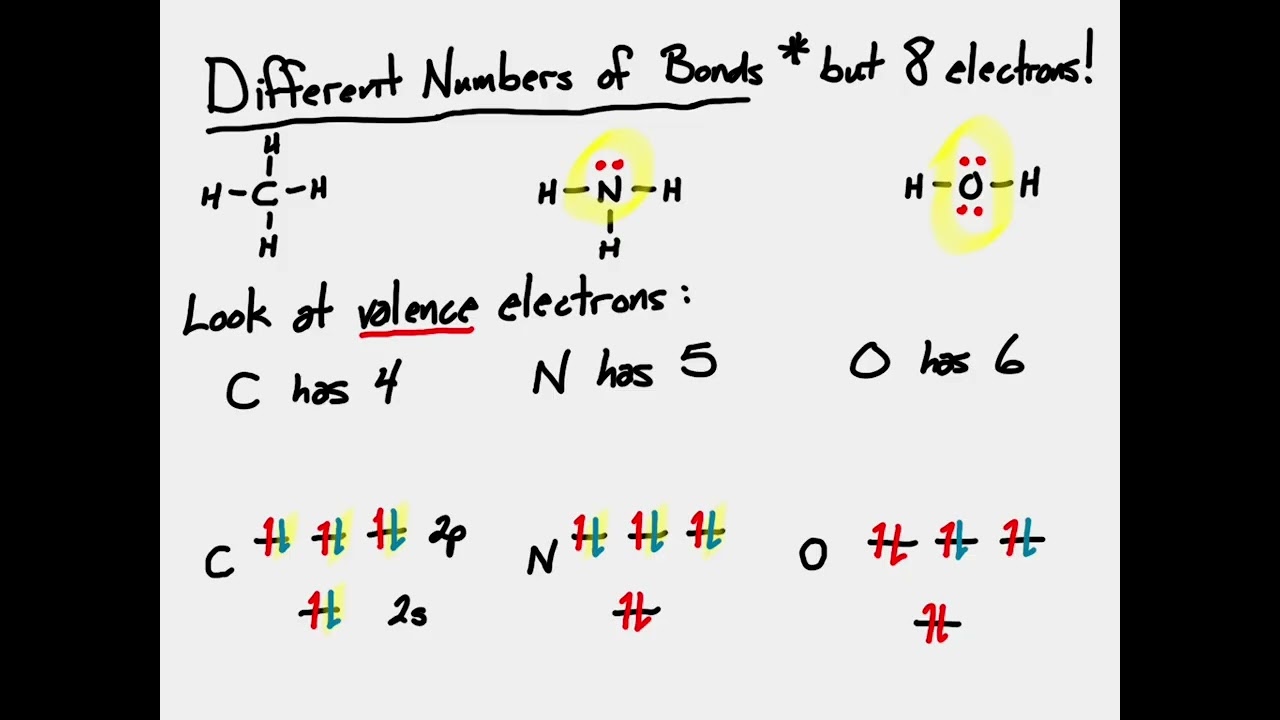 Different Numbers of Bonds * but 8 electrons!
H
H-C-H
H
H-N-H
H
H-O-H
Look at valence electrons:
C has 4
N has 5
O has 6
C 2p
2s
N
O